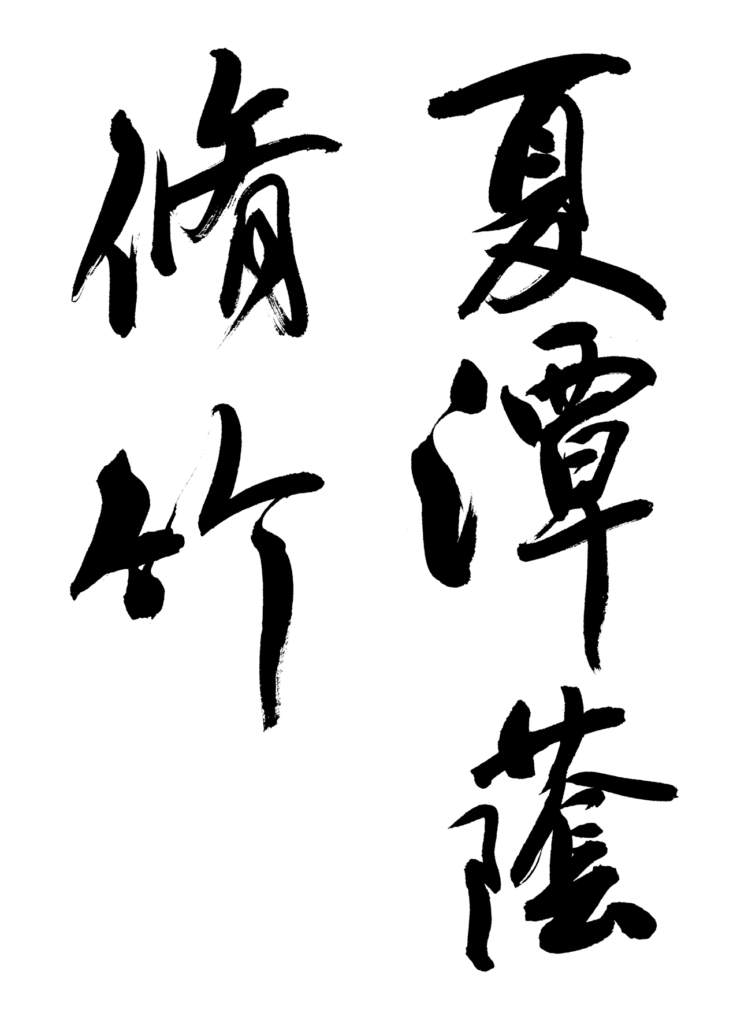 夏潭蔭
脩竹